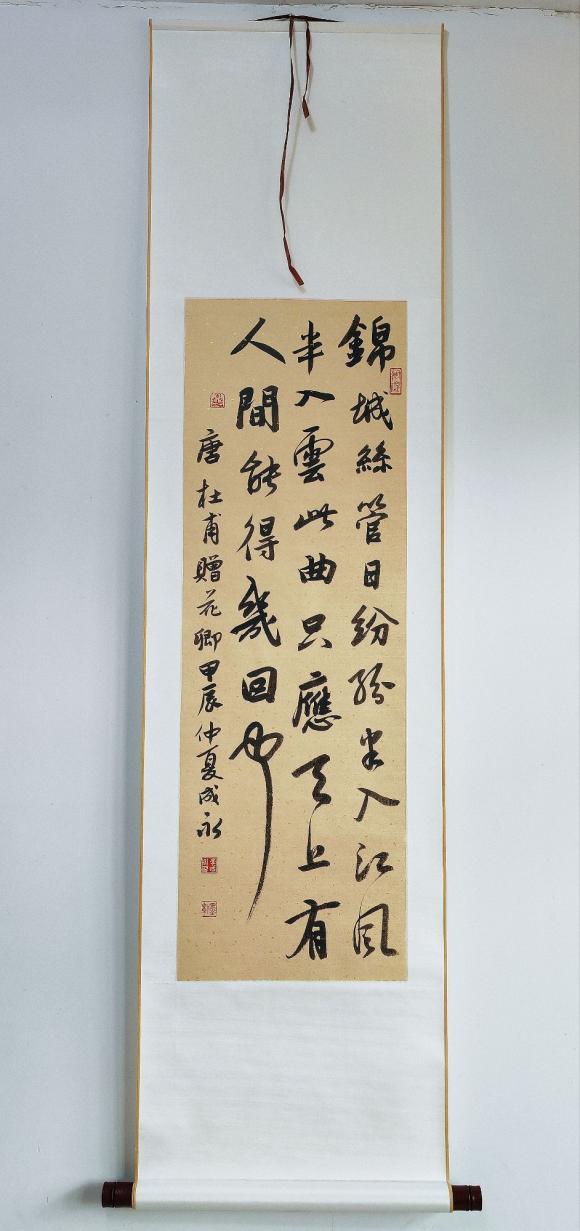 錦城絲管日紛紛半入江風
半入雲此曲只應天上有
人間能得幾回聞
唐杜甫贈花卿甲辰仲夏成永